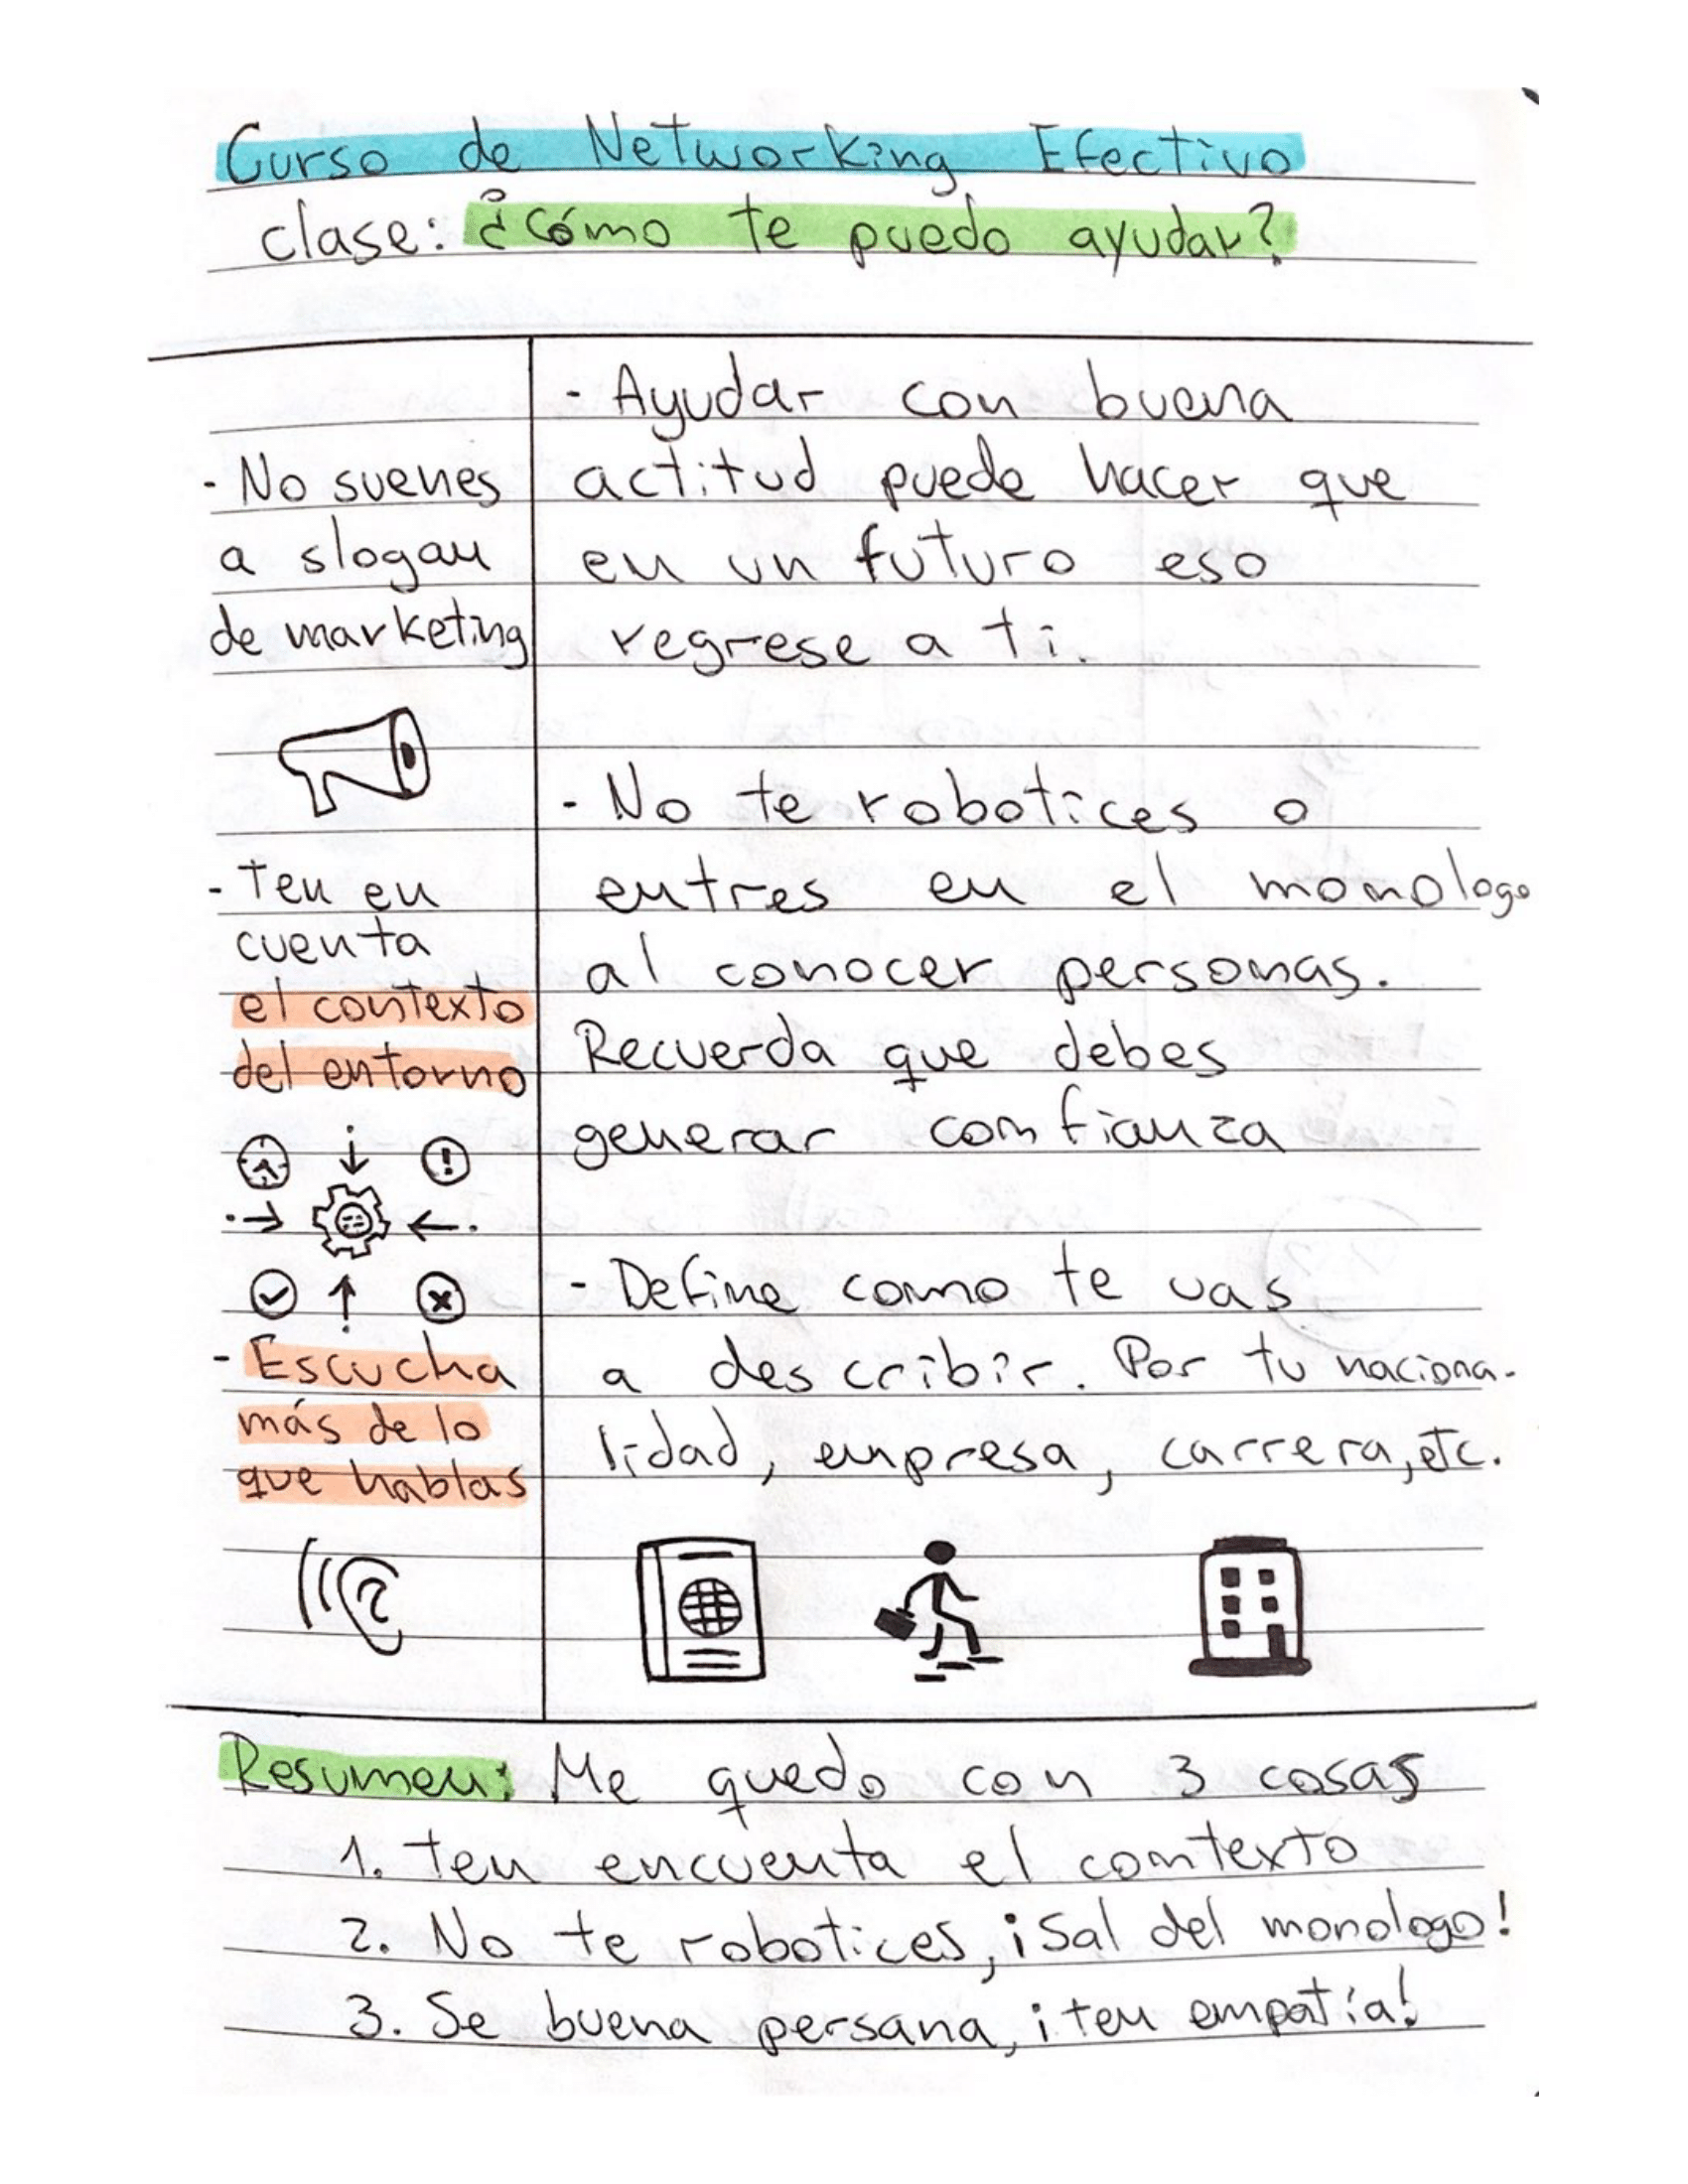 Curso de Networking Efectivo
clase: ¿Cómo te puedo ayudar?
- No suenes
a slogan
de marketing
- Ten en
cuenta
el contexto
del entorno
- Escucha
más de lo
que hablas
- Ayudar con buena
actitud puede hacer que
en un futuro eso
regrese a ti.
- No te robotices o
entres en el monologo
al conocer personas.
Recuerda que debes
generar confianza
- Define como te vas
a describir. Por tu naciona-
lidad, empresa, carrera, etc.
Resumen: Me quedo con 3 cosas
1. Ten encuenta el contexto
2. No te robotices, ¡Sal del monologo!
3. Se buena persana, ¡ten empatía!